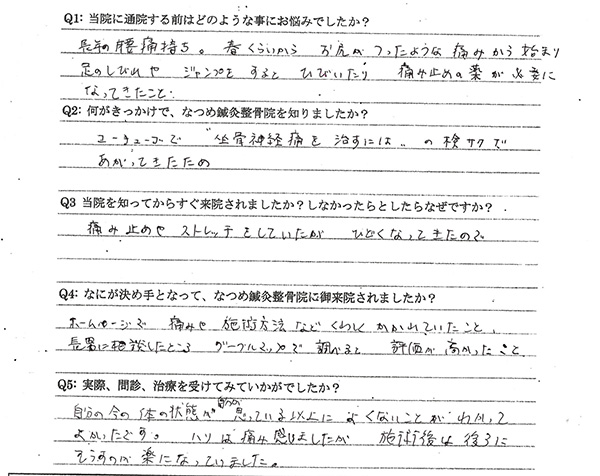 Q1: 当院に通院する前はどのような事にお悩みでしたか？
長年の腰痛持ち。春くらいから お尻がつったような痛みから始まり
足のしびれや ジャンプをすると ひびいたり 痛み止めの薬が必要に
なってきたこと.
Q2: 何がきっかけで、なつめ鍼灸整骨院を知りましたか？
ユーチューブで "坐骨神経痛を 治すには" の検サクで
あがってきたため
Q3 当院を知ってからすぐ来院されましたか？しなかったらとしたらなぜですか？
痛み止めや ストレッチをしていたが ひどくなってきたので
Q4: なにが決め手となって、なつめ鍼灸整骨院に御来院されましたか？
ホームページで 痛みや 施術方法など くわしく かかれていたこと、
長男に相談したところ グーグルマップで 調べると 評価が高かったこと
Q5: 実際、問診、治療を受けてみていかがでしたか？
自分の今の体の状態が 自分の思っている以上に よくないことが わかって
よかったです。 ハリは痛み感じましたが 施術後は 後ろに
そらすのが 楽になっていました。